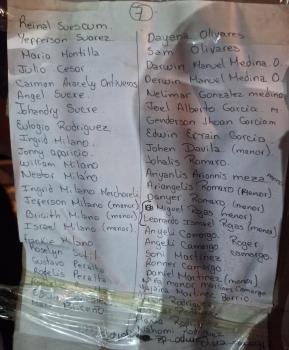 7
Reinal Suescum.
Yefferson Suarez
Mario Montilla
Julio Cesar
Carman Aracely Ontiveros
Angel Sucre
Johandry Sucre
Eulogio Rodriguez
Ingrid Milano.
Jonny aparicio.
William Milano
Nestor Milano
Ingrid Milano
Jeferson Milano (menor)
Bricith Milano (menor)
Israel Milano (menor)
Milano
Roselyn
Gustavo Peralta
Rogelis Peralta
Briceño
Dayena Olivares
Sam Olivares
Darwin Manuel Medina O.
Derwin Manuel Medina O.
Nelimar Gonzalez medina
Joel Alberto Garcia. m
Genderson Jhoan Garcia m
Edwin Efrain Garcia
Johen Davila (menor)
Johalis Romaro.
Anyanlis Ariannis meza
Ariangelis Romaro (Menor)
Danyer Romaro (menor)
Miguel Rojas (menor)
Leonardo Ismael Rojas (menor)
Angeli Camargo
Angeli Camargo Roger camargo.
Soni Martinez
Ronner Camargo
Daniel Martinez (menor)
manor martinez Camargo
Martinez Barrio
Rodrigu